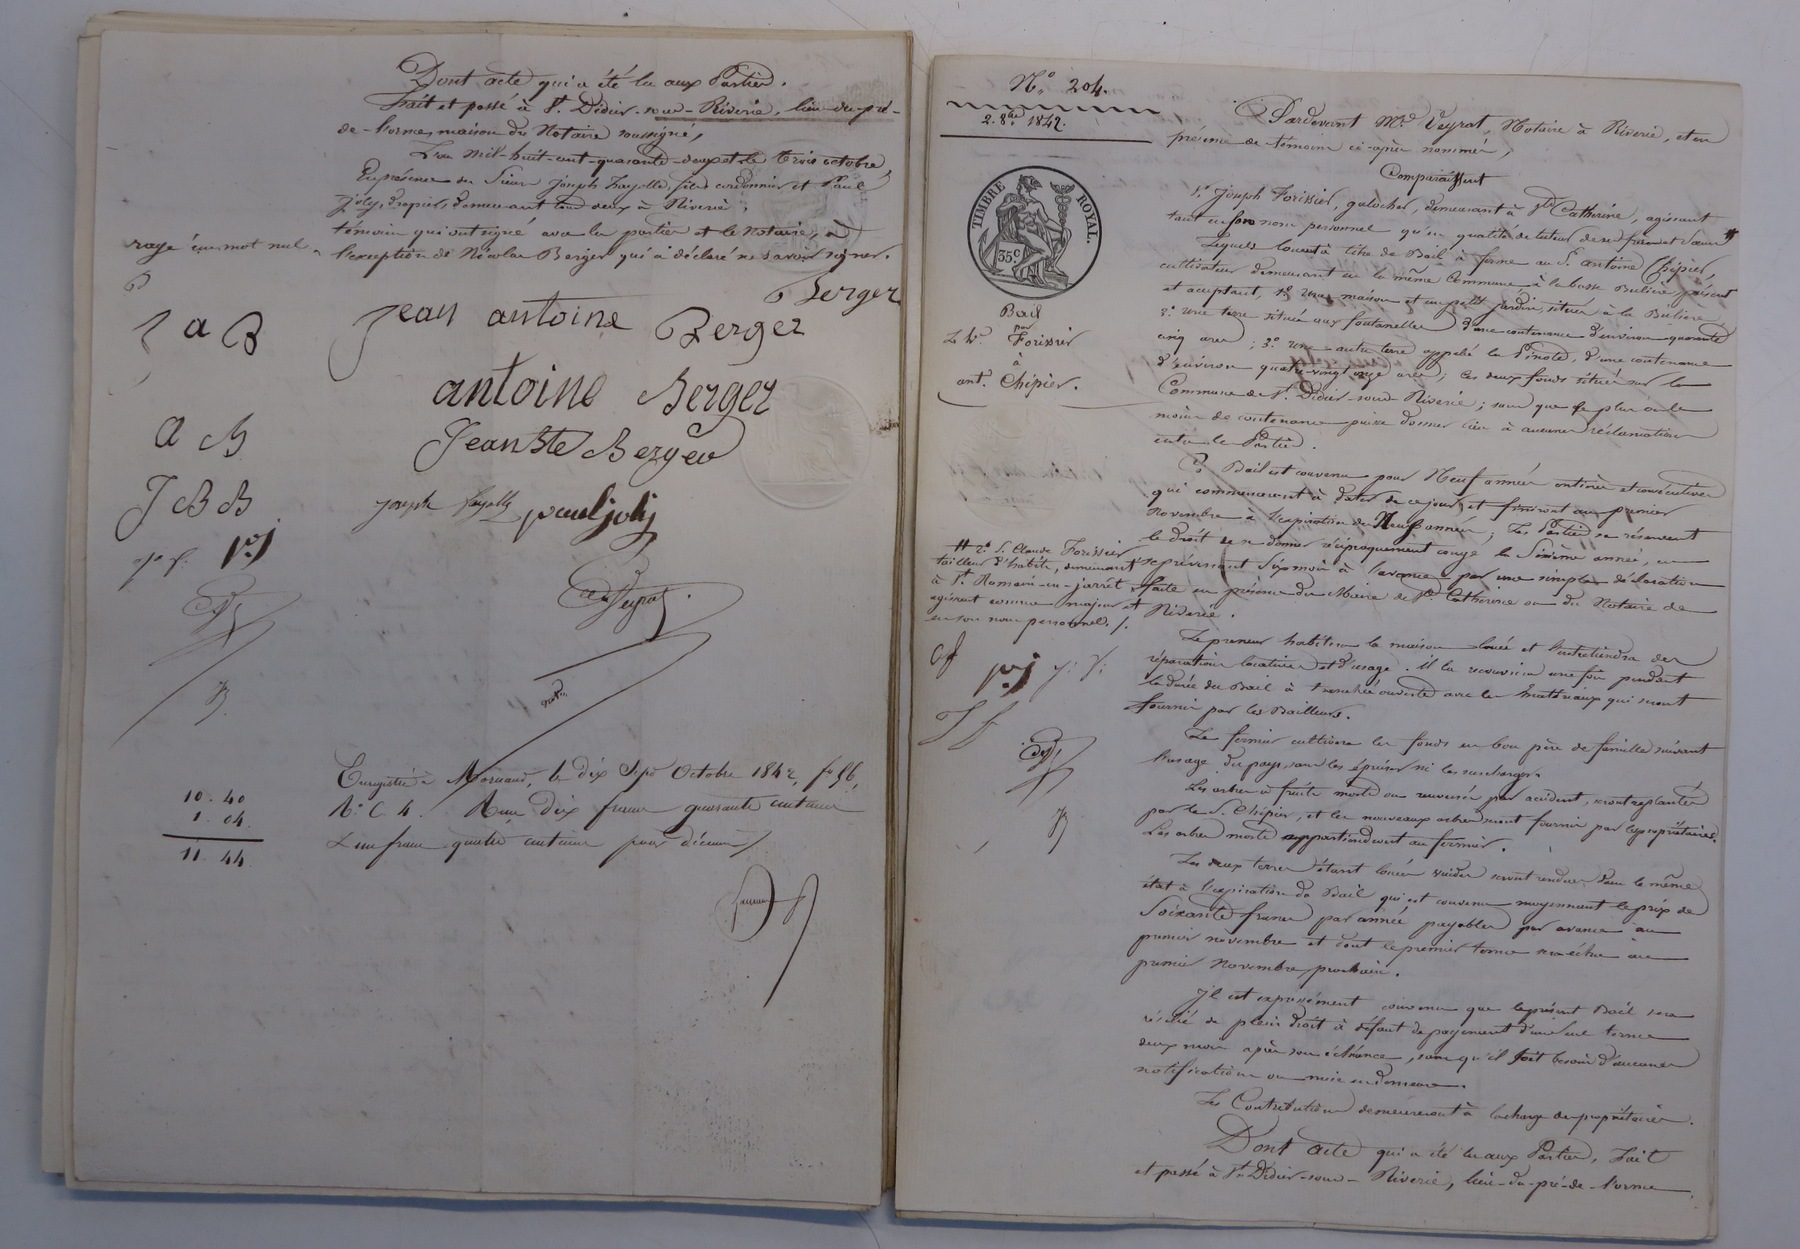 Dont acte qui a été lu aux Parties.
Fait et passé à St. Didier-sous-Riverie, lieu-du-pré-
de-l'orme, maison du Notaire soussigné,
L'an mil-huit-cent-quarante-deux et le trois octobre,
En présence des Sieurs Joseph Fayolle, fils cordonnier et Paul
Joly, drapier, demeurant tous deux à Riverie,
témoins qui ont signé avec les parties et le Notaire, à
l'exception de Nicolas Berger qui a déclaré ne savoir signer.
rayé un mot nul
Berger
J a B
Jean antoine Berger
antoine Berger
a B
Jean Bte Berger
J B B
joseph fayolle paul joly
jh f. p.j
Veyrat
notre
Enregistré à Mornand, le dix Sept Octobre 1842, fo 56,
Vo C. 4. Reçu dix francs quarante centimes
& un franc quatre centimes pour décime
10.40
1.04.
11.44.
No. 204.
2. 8bre 1842.
TIMBRE ROYAL.
35c
Bail
par
Forissier
à
ant. Chipier.
Pardevant Me. Veyrat, Notaire à Riverie, et en
présence de témoins ci-après nommés,
Comparaissent
1o Joseph Forissier, galocher, demeurant à Ste Catherine, agissant
tant en son nom personnel qu'en qualité de tuteur de ses frères et Sœurs #
Lesquels louent à titre de Bail à ferme au Sr. antoine Chipier,
cultivateur demeurant en la même Commune, à la basse Bulière, présent
et acceptant, 1o Une maison et un petit jardin situés à la Bulière
2o Une terre située aux fontanelles d'une contenance d'environ quarante
cinq ares; 3o Une autre terre appelé la Pinote, d'une contenance
d'environ quatre-vingt onze ares; Ces deux fonds situés sur la
Commune de St. Didier-sous-Riverie; sans que le plus ou le
moins de contenance puisse donner lieu à aucune réclamation
entre les Parties.
Ce Bail est convenu pour Neuf années entières et consécutives
qui commenceront à dater de ce jour, et finiront au premier
Novembre à l'expiration des Neuf années; Les Parties se réservent
le droit de se donner réciproquement congé la Sixième année, en
se prévenant Six mois à l'avance par une simple déclaration
faite en présence du Maire de Ste Catherine ou du Notaire de
Riverie.
# 2o S. Claude Forissier
tailleur d'habits, demeurant
à St Romain-en-jarrêt,
agissant comme majeur et
en son nom personnel. /.
Cf p.j j: f:
J f
Le preneur habitera la maison louée et l'entretiendra des
réparations locatives et d'usage. Il la recouvrira une fois pendant
la durée du Bail à tranchée ouverte avec les matériaux qui seront
fournis par les Bailleurs.
Le fermier cultivera les fonds en bon père de famille suivant
l'usage du pays, sans les épuiser ni les surcharger.
Les arbres à fruits morts ou renversés par accident, seront replantés
par le S. Chipier, et les nouveaux arbres seront fournis par les propriétaires.
Les arbres morts appartiendront au fermier.
Les deux terres étant louées vuides seront rendues dans le même
état à l'expiration du Bail qui est convenu moyennant le prix de
Soixante francs par année payables par avance au
premier novembre et dont le premier terme sera échu au
premier Novembre prochain.
Il est expressément convenu que le présent Bail sera
résilié de plein droit à défaut de payement d'un seul terme
deux mois après son échéance, sans qu'il soit besoin d'aucune
notification ou mise en demeure.
Les Contributions demeureront à la charge des propriétaires.
Dont acte qui a été lu aux Parties, Fait
et passé à St. Didier-sous-Riverie, lieu-du-pré-de-l'orme